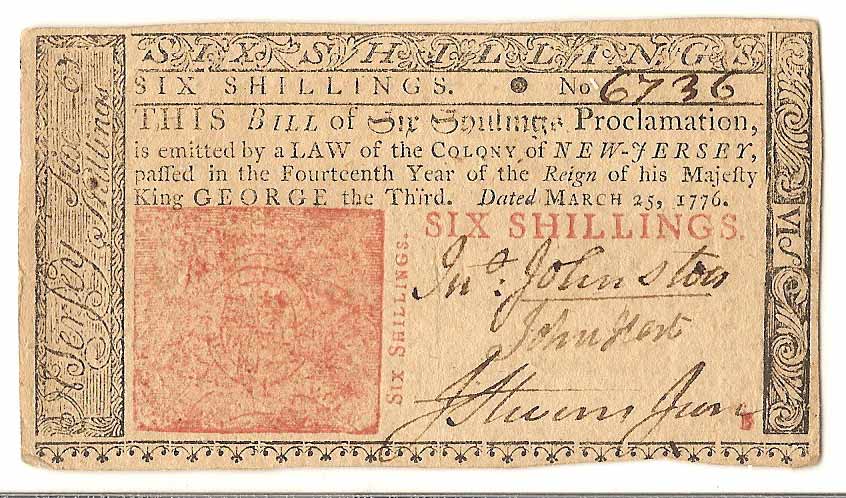 SIX SHILLINGS
SIX SHILLINGS. No 6736
THIS BILL of Six Shillings Proclamation,
is emitted by a LAW of the COLONY of NEW-JERSEY,
paſſed in the Fourteenth Year of the Reign of his Majeſty
King GEORGE the Third. Dated MARCH 25, 1776.
SIX SHILLINGS.
Jno. Johnston
John Hart
J Stevens Jun
SIX SHILLINGS.
N Jerſey
Shillings
VIS
B